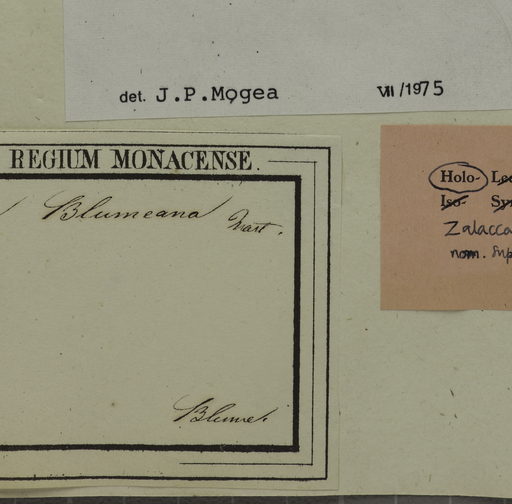 det. J.P.Mogea VII/1975
REGIUM MONACENSE.
Blumeana Mart.
Blume.
Holo-
Iso-
Zalacca
nom.